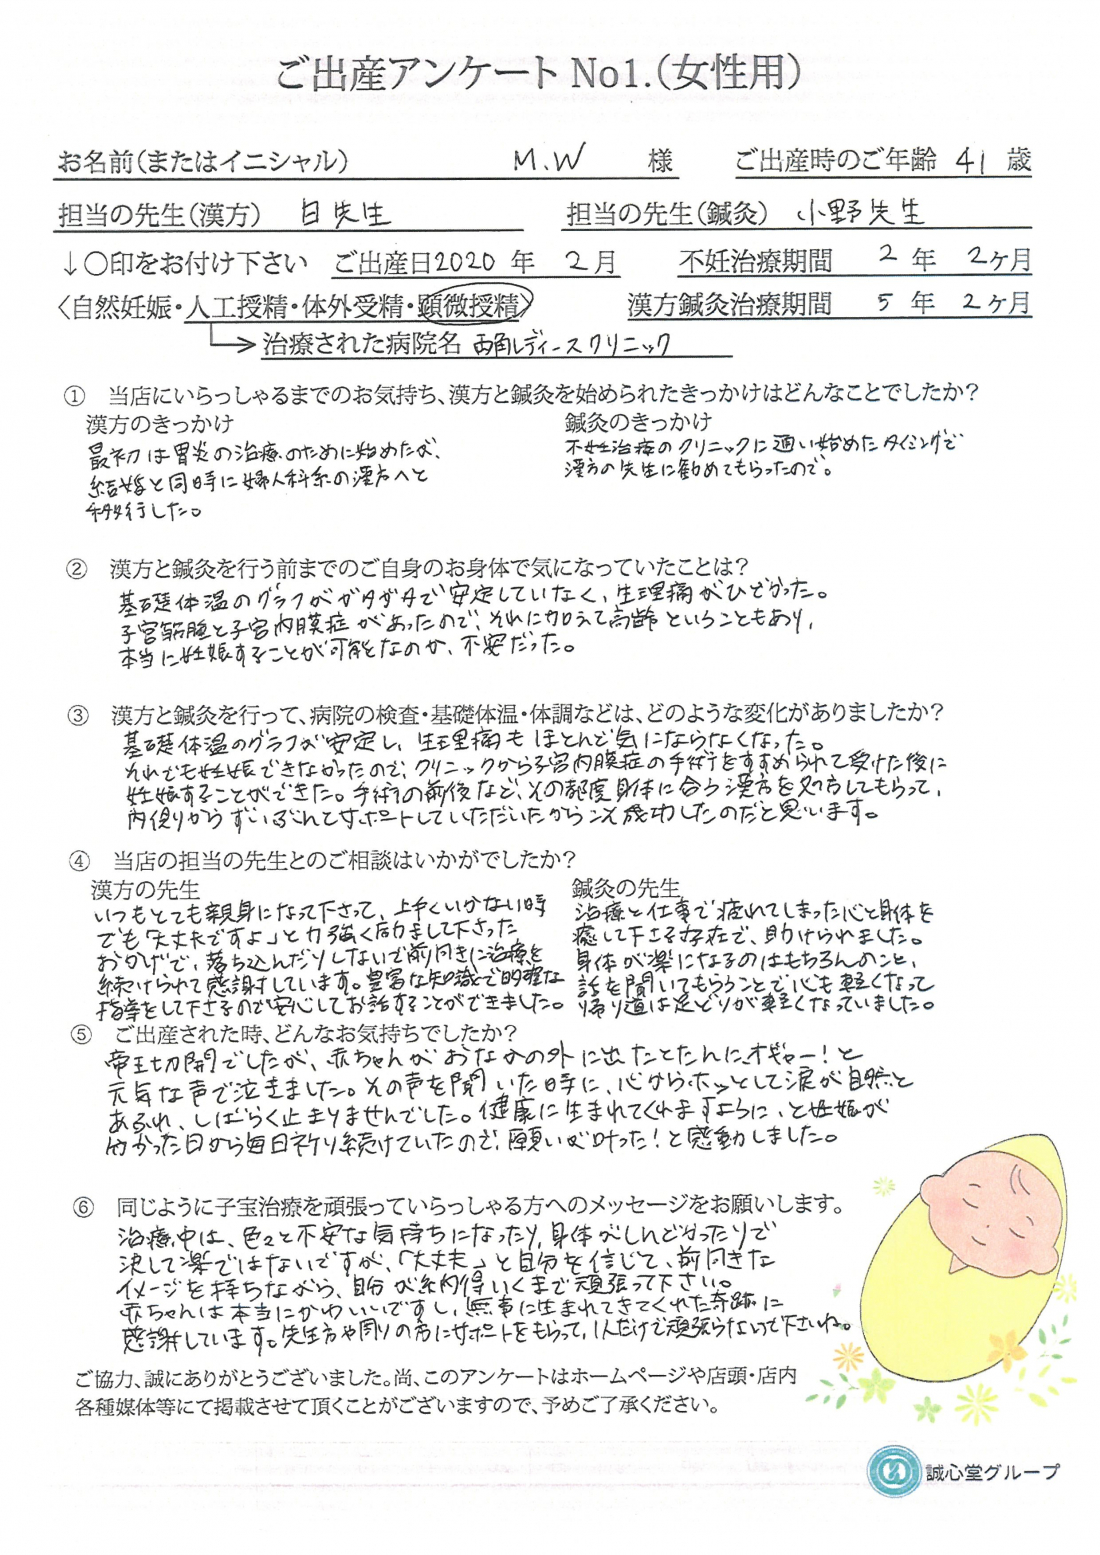 ご出産アンケート No1.(女性用)
お名前(またはイニシャル) M.W 様 ご出産時のご年齢 41 歳
担当の先生(漢方) 白先生 担当の先生(鍼灸) 小野先生
↓○印をお付け下さい ご出産日2020 年 2月 不妊治療期間 2 年 2ヶ月
〈自然妊娠・人工授精・体外受精・顕微授精〉 漢方鍼灸治療期間 5 年 2ヶ月
治療された病院名 両角レディースクリニック
① 当店にいらっしゃるまでのお気持ち、漢方と鍼灸を始められたきっかけはどんなことでしたか?
漢方のきっかけ
最初は胃炎の治療のために始めたが、
結婚と同時に婦人科系の漢方へと
移行した。
鍼灸のきっかけ
不妊治療のクリニックに通い始めたタイミングで
漢方の先生に勧めてもらったので。
② 漢方と鍼灸を行う前までのご自身のお身体で気になっていたことは?
基礎体温のグラフがガタガタで安定していなく、生理痛がひどかった。
子宮筋腫と子宮内膜症があったので、それに加えて高齢ということもあり、
本当に妊娠することが可能なのか、不安だった。
③ 漢方と鍼灸を行って、病院の検査・基礎体温・体調などは、どのような変化がありましたか?
基礎体温のグラフが安定し、生理痛もほとんど気にならなくなった。
それでも妊娠できなかったので、クリニックから子宮内膜症の手術をすすめられて受けた後に
妊娠することができた。手術の前後など、その都度身体に合う漢方を処方してもらって、
内側からずいぶんとサポートしていただいたからこそ成功したのだと思います。
④ 当店の担当の先生とのご相談はいかがでしたか?
漢方の先生
いつもとても親身になって下さって、上手くいかない時
でも「大丈夫ですよ」と力強く励まして下さった
おかげで、落ち込んだりしないで前向きに治療を
続けられて感謝しています。豊富な知識で的確な
指導をして下さるので安心してお話することができました。
鍼灸の先生
治療と仕事で疲れてしまった心と身体を
癒して下さる存在で、助けられました。
身体が楽になるのはもちろんのこと、
話を聞いてもらうことで心も軽くなって
帰り道は足どりが軽くなっていました。
⑤ ご出産された時、どんなお気持ちでしたか?
帝王切開でしたが、赤ちゃんがおなかの外に出たとたんに、オギャー!と
元気な声で泣きました。その声を聞いた時に、心からホッとして涙が自然と
あふれ、しばらく止まりませんでした。健康に生まれてくれますように、と妊娠が
分かった日から毎日祈り続けていたので、願いが叶った!と感動しました。
⑥ 同じように子宝治療を頑張っていらっしゃる方へのメッセージをお願いします。
治療中は、色々と不安な気持ちになったり、身体がしんどかったりで
決して楽ではないですが、「大丈夫」と自分を信じて、前向きな
イメージを持ちながら、自分が納得いくまで頑張って下さい。
赤ちゃんは本当にかわいいですし、無事に生まれてきてくれた奇跡に
感謝しています。先生方や周りの方にサポートをもらって、1人だけで頑張らないで下さいね。
ご協力、誠にありがとうございました。尚、このアンケートはホームページや店頭・店内
各種媒体等にて掲載させて頂くことがございますので、予めご了承ください。
誠心堂グループ